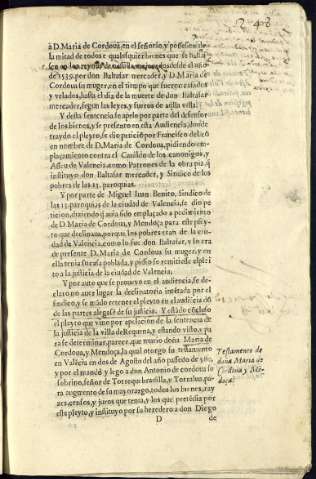 à D. Maria de Cordoua, en el señorio, y possesion de
la mitad de todos e qualesquier bienes que se halla
sen en los reynos de Castilla, mejorados desde el año
de 1539. por don Baltasar mercader, y D. Maria de
Cordoua su muger, en el tiempo que fuerō casados
y velados, hasta el dia de la muerte de don Baltasar
mercader, segun las leyes, y fueros de aq̃lla villa.
Y desta sentencia se apelo por parte del defensor
de los bienes, y se presento en esta Audiencia, donde
traydo el pleyto, se dio peticiō por Francisco de
en nombre de D. Maria de Cordoua, pidiendo em-
plaçamiento contra el Cauildo de los canonigos, y
de Valencia, como Patrones de la obra pia, q̃
instituyo don Baltasar mercader, y Sindico de los
pobres de las 13. paroquias.
Y por parte de Miguel Iuan Benito, Sindico de
las 13. paroquias de la ciudad de Valencia, se dio pe
ticion, diziendo q̃ auia sido emplaçado a pedimiento
de D. Maria de Cordoua, y Mendoça para este pley-
to que declinaua, porque los pobres eran de la ciu-
dad de Valencia, como lo fue don Baltasar, y lo era
de presente D. Maria de Cordoua su muger, y en
ella tenia su casa poblada, y pidio se remitiesse el pley
to a la justicia de la ciudad de Valencia.
Y por auto que se proueyo en el audiencia, se de-
claro no auer lugar la declinatoria intētada por el
sindico, y se mādo retener el pleyto en el audiēcia, y q̃
las partes alegassē de su justicia. Y estādo cōcluso
el pleyto que vino por apelacion de la sentencia de
la justicia de la villa de Requena, y estando visto, pa
ra se determinar, parece que murio doña Maria de
Cordoua, y Mendoça, la qual otorgo su testamento
en Valēcia en dos de Agosto del año passado de 1569
y por el mandò y lego a don Antonio de cordoua su
sobrino, señor de Torrequebradilla, y Torralua, pa
ra augmento de su mayorazgo, todos los bienes, ray
zes, censos, y juros que tenia, y los que pretēdia por
este pleyto, y instituyo por su heredero a don Diego
D de
Testamento de
doña Maria de
Cordoua y Mē-
doça.